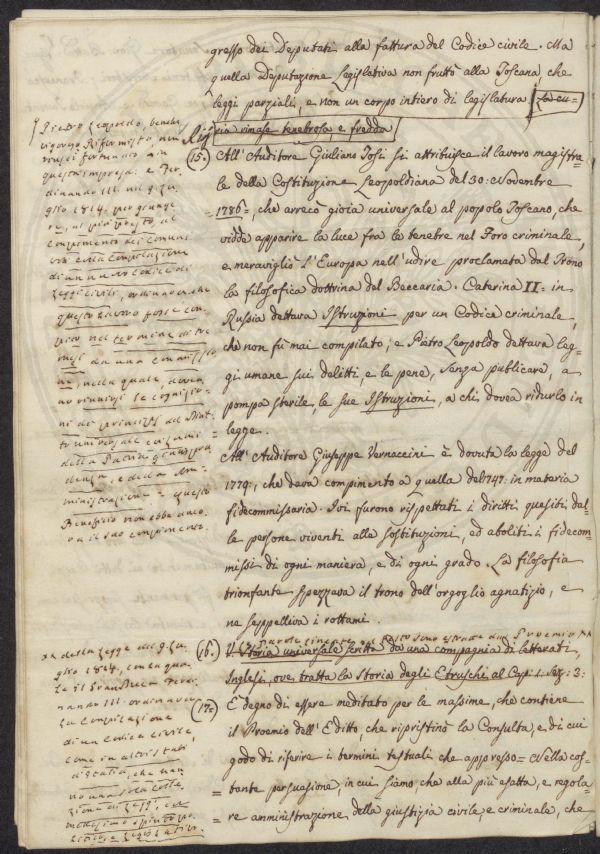 gresso dei Deputati alla fattura del Codice civile. Ma
quella Deputazione Legislativa non fruttò alla Toscana, che
leggi parziali, e non un corpo intiero di legislatura. La cu=
ria rimase tenebrosa e fredda
(15.) All'Auditore Giuliano Tosi si attribuisce il lavoro magistra=
le della Costituzione Leopoldiana del 30: Novembre
=1786=, che arrecò gioia universale al popolo Toscano, che
vidde apparire la luce fra le tenebre nel Foro criminale,
e meravigliò l'Europa nell'udire proclamata dal Trono
la filosofica dottrina del Beccaria. Caterina II= in
Russia dettava Istruzioni per un Codice criminale,
che non fù mai compilato; e Pietro Leopoldo dettava leg=
gi umane sui delitti, e le pene, senza publicare, a
pompa sterile, le sue Istruzioni, a chi dovea ridurlo in
legge.
All'Auditore Giuseppe Vernaccini è dovuta la legge del
1779:, che dava compimento a quella del 1747: in materia
fidecommissaria. Ivi furono rispettati i diritti quesiti dal=
le persone viventi alla sostituzioni, ed aboliti i fidecom=
missi di ogni maniera, e di ogni grado. La filosofia
trionfante spezzava il trono dell'orgoglio agnatizio, e
ne seppelliva i rottami.
parole lineate sono estratte dal Proemio **
(16.) V. Storia universale scritta da una compagnia di letterati
Inglesi, ove tratta la Storia degli Etruschi al Cap: 1: Sez: 3:
(17.) È degno di essere meditato per le massime, che contiene
il Proemio dell'Editto, che ripristinò la Consulta, e di cui
godo di riferire i termini testuali che appresso = Nella cos=
= tante persuasione, in cui siamo, che alla più esatta, e regola=
= re amministrazione della giustizia civile, e criminale, che
Pietro Leopoldo, benchè
vigoroso Riformista non
fortunato in
questa impresa: e Fer=
dinando III. nel 9. Lu=
glio 1814. per giunge=
re, al più presto, al
compimento dei comuni
voti colla compilazione
di un nuovo Codice di
Leggi civili, ordinava che
questo lavoro fosse com=
pito nel termine di tre
mesi da una commissio=
ne, nella quale, dovea=
no riunirsi le cognizio=
ni dei principj del Dirit=
to universale coi lumi
della Patria giurispru=
denza, e della Am=
ministrazione = questo
Beneficio non ebbe anco=
ra il suo compimento.
** della Legge dei 9. Lu=
glio 1814, con la qua=
le il Granduca Ferdi=
nando III. ordinava
la compilazione
di un Codice civile,
come in altri stati
d'Italia, che han=
no una sola colle=
zione di Leggi, e